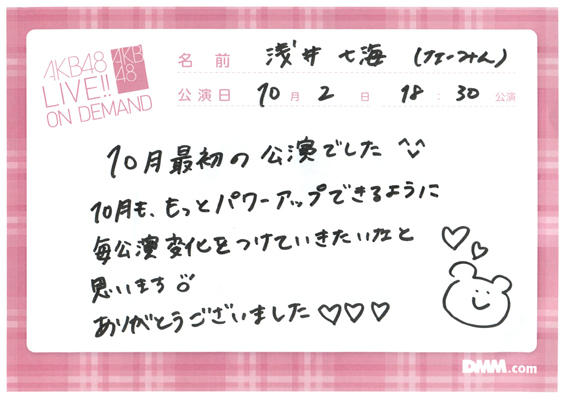 AKB48
LIVE!!
ON DEMAND
AKB
48
名前 浅井七海 (なーみん)
公演日 10月2日 18:30公演
10月最初の公演でした
10月も、もっとパワーアップできるように
毎公演変化をつけていきたいなと
思います
ありがとうございました♡♡♡
DMM.com